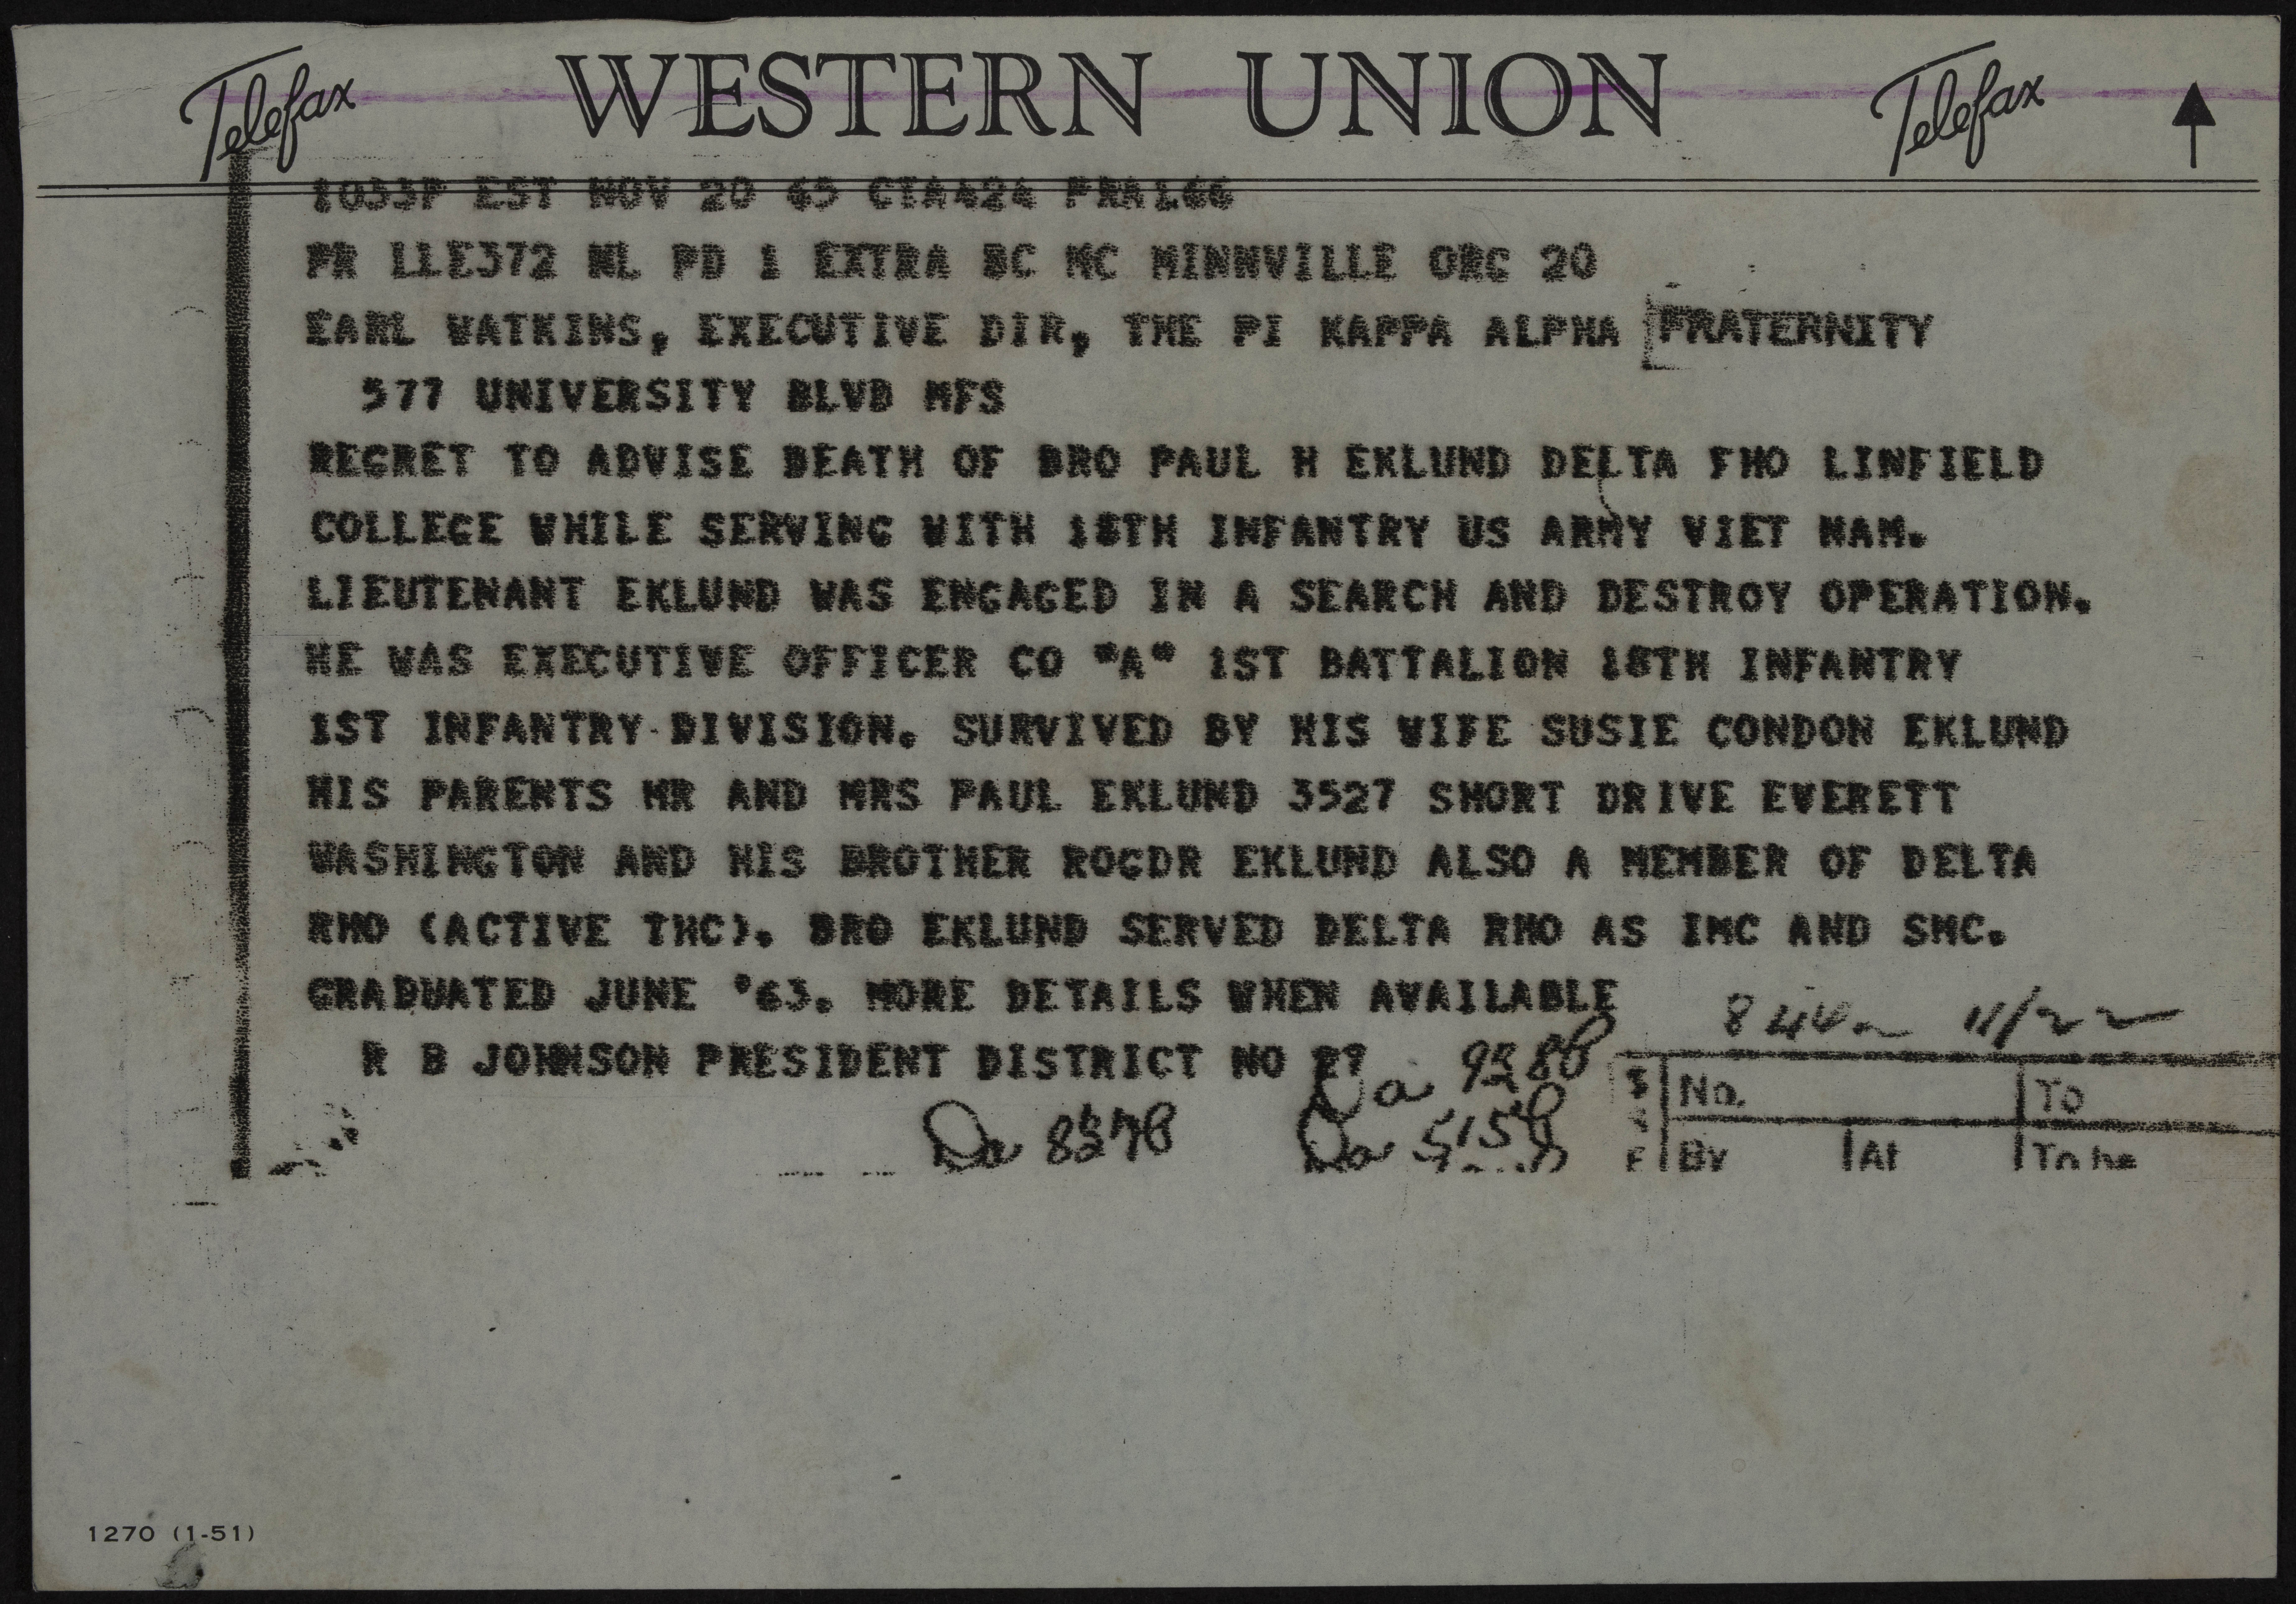 Telefax WESTERN UNION Telefax
1033P EST NOV 20 65 CTA424 PRA166
PR LLE372 NL PD 1 EXTRA BC MC MINNVILLE ORG 20
EARL WATKINS, EXECUTIVE DIR, THE PI KAPPA ALPHA FRATERNITY
577 UNIVERSITY BLVD MFS
REGRET TO ADVISE DEATH OF BRO PAUL H EKLUND DELTA FHO LINFIELD
COLLEGE WHILE SERVING WITH 18TH INFANTRY US ARMY VIET NAM.
LIEUTENANT EKLUND WAS ENGAGED IN A SEARCH AND DESTROY OPERATION.
HE WAS EXECUTIVE OFFICER CO "A" 1ST BATTALION 18TH INFANTRY
1ST INFANTRY DIVISION. SURVIVED BY HIS WIFE SUSIE CONDON EKLUND
HIS PARENTS MR AND MRS PAUL EKLUND 3527 SHORT DRIVE EVERETT
WASHINGTON AND HIS BROTHER ROGDR EKLUND ALSO A MEMBER OF DELTA
RHO (ACTIVE THC). BRO EKLUND SERVED DELTA RHO AS IMC AND SMC.
GRADUATED JUNE '63. MORE DETAILS WHEN AVAILABLE
11/22
R B JOHNSON PRESIDENT DISTRICT NO
Da
No. To
Da Da
By At To be
1270 (1-51)